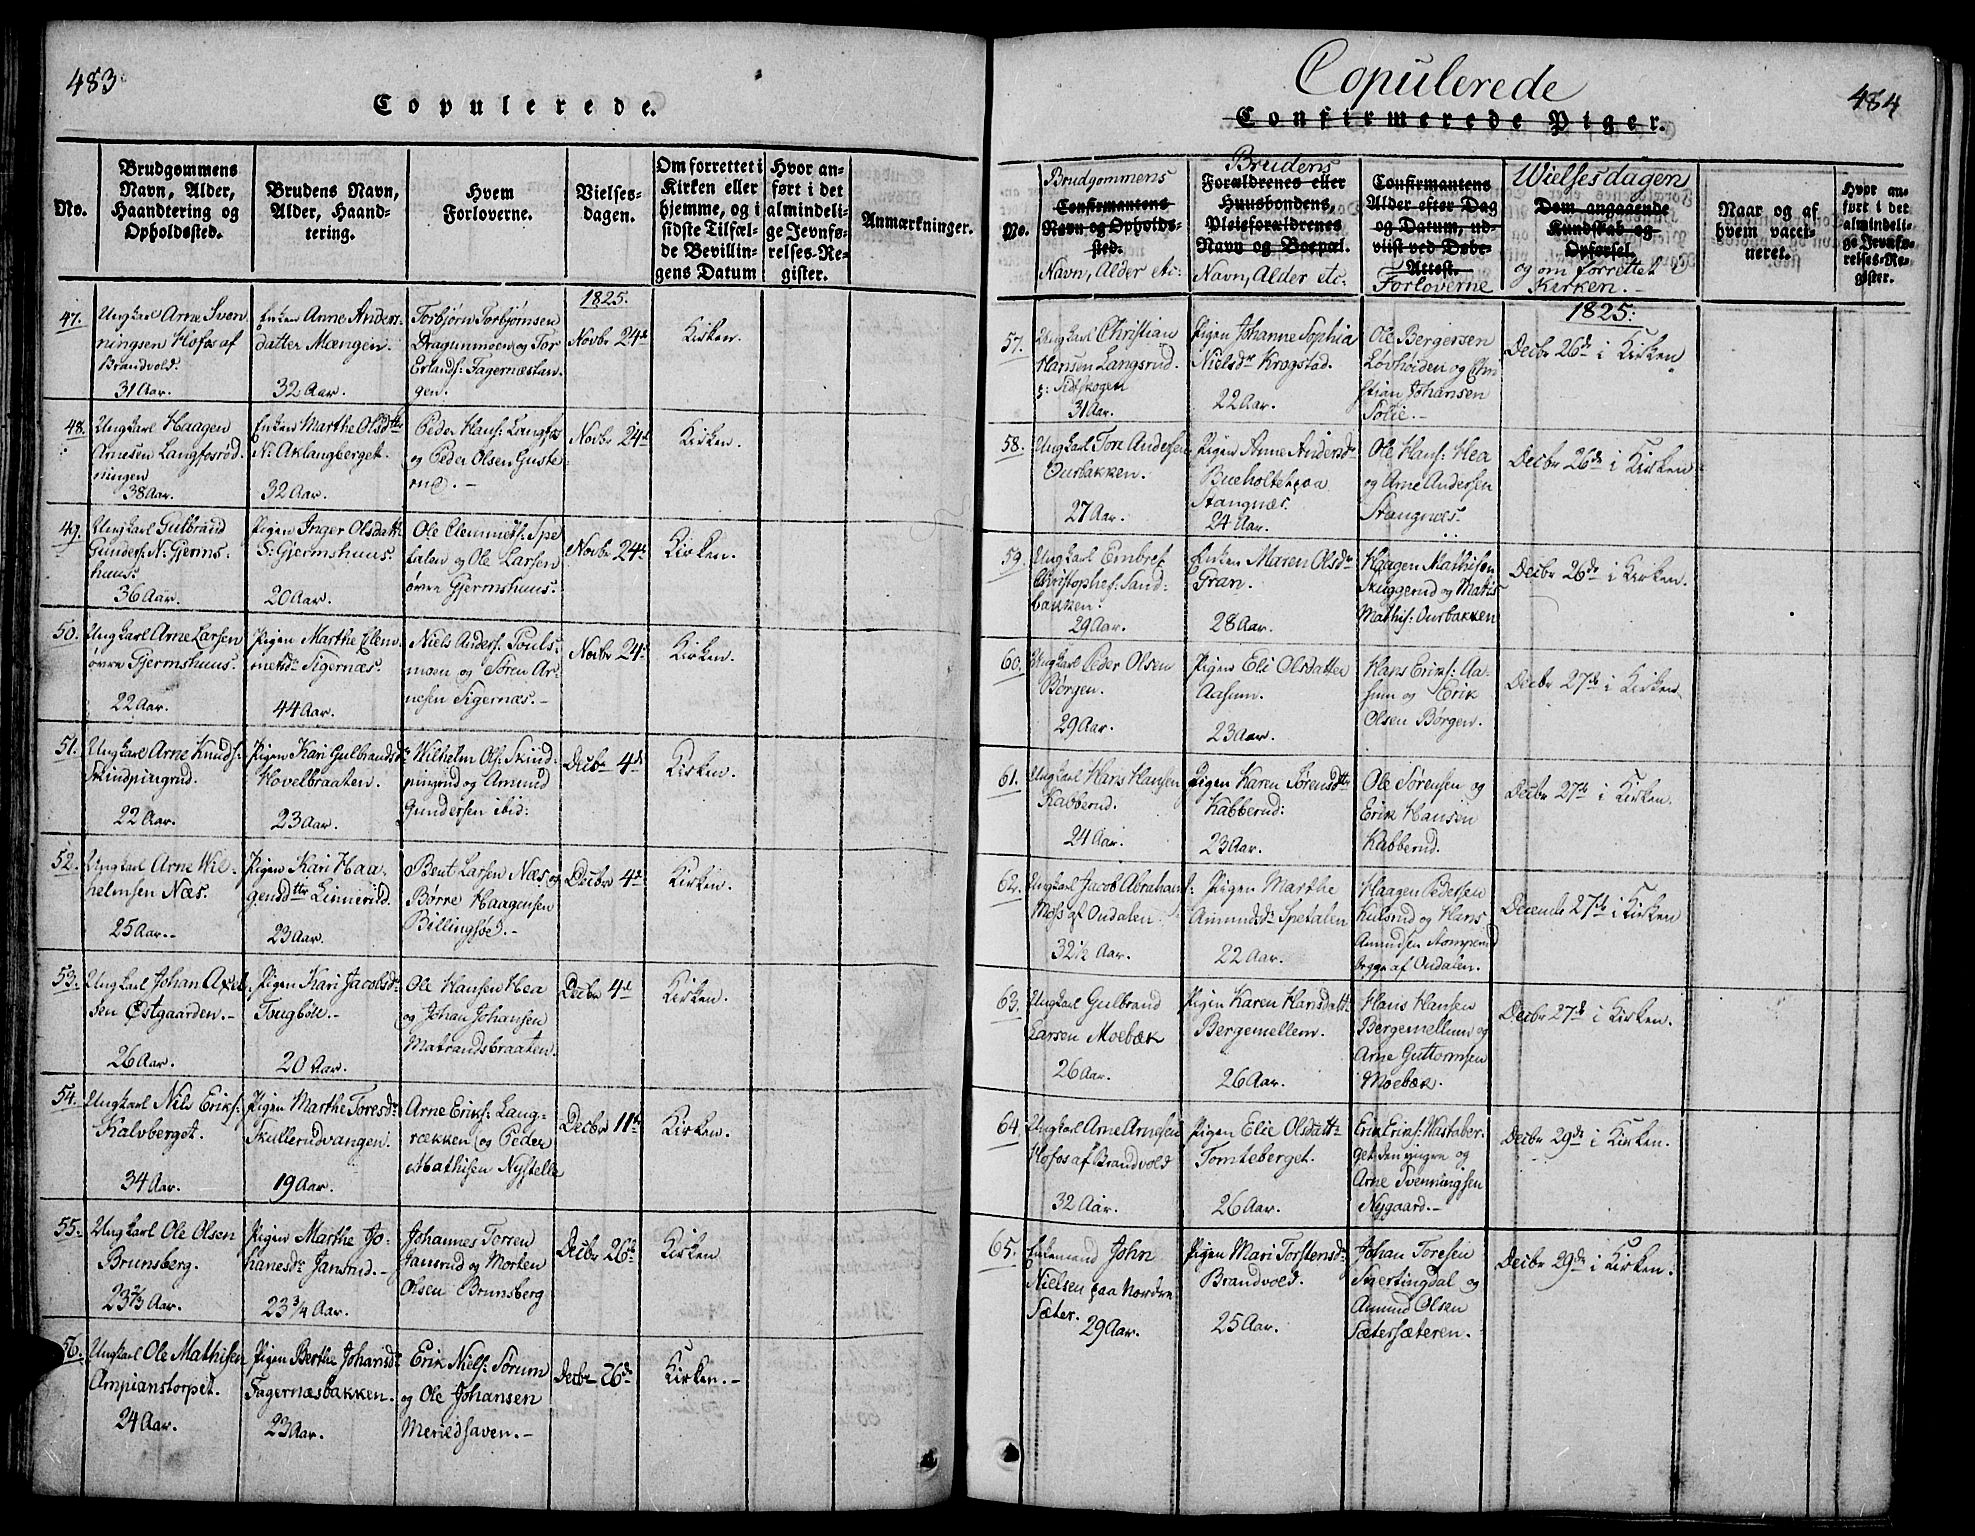 483
Copulerede.
No.
Brudgommens
Navn, Alder,
Haandtering og
Opholdssted.
Brudens Navn,
Alder, Haand-
tering.
Hvem
Forloverne.
Vielses-
dagen.
Om forrettet i
Kirken eller
hjemme, og i
sidste Tilfæl-
de Bevillin-
gens Datum
Hvor an-
ført i det
almindeli-
ge Jevnfø-
relses-Re-
gister.
Anmærkninger.
1825.
47.
Ungkarl Arne Sven
ningsen Hofos af
Brandvold.
31 Aar.
Enken Anne Anders-
datter Mængen.
32 Aar.
Torbjørn Torbjørnsen
Dragunmoen og Tor
Erlands: Fagernæstan
gen.
Novbr 24de
Kirken.
48.
Ungkarl Haagen
Arnesen Langfosrød
ningen
38 Aar.
Enken Marthe Olsdttr
N: Aklangberget.
32 Aar.
Peder Hans: Langfos
og Peder Olsen Guste
rud. -
Novbr 24de
Kirken.
49.
Ungkarl Gulbrand
Gunders: N: Gjerms-
huus.
36 Aar.
Pigen Inger Olsdatt:
S: Gjermshuus.
20 Aar.
Ole Clemmets: Spe
talen og Ole Larsen
øvre Gjermshuus.
Novbr 24de
Kirken.
50.
Ungkarl Arne Larsen
øvre Gjermshuus.
22 Aar.
Pigen Marthe Clem
metsdr Sigernæs.
44 Aar.
Niels Anders: Pouls-
moen og Søren Ar-
nesen Sigernæs. -
Novbr 24de
Kirken.
51.
Ungkarl Arne Knuds:
Skindpingrud.
22 Aar.
Pigen Kari Gulbrandsdr
Hovelbraaten.
23 Aar.
Wilhelm Ols: Skind
pingrud og Amund
Gundersen ibid:
Decbr 4de
Kirken.
52.
Ungkarl Arne Wil-
helmsen Næs.
25 Aar. -
Pigen Kari Haa-
gensdttr Linnerud.
23 Aar.
Bent Larsen Næs og
Børre Haagensen
Billingsøe. -
Decbr 4de
Kirken.
53.
Ungkarl Johan Axel
sen Østgaarden. -
26 Aar.
Pigen Kari Jacobsdr
Tougbøl. -
20 Aar.
Ole Hansen Hea
og Johan Johansen
Matrandsbraaten.
Decbr 4de
Kirken.
54.
Ungkarl Nils Eriks:
Kalvberget.
34 Aar.
Pigen Marthe Toresdr
Skullerudvangen.
19 Aar.
Arne Eriks: Lang-
rækken og Peder
Mathisen Nystelle
Decbr 11te
Kirken.
55.
Ungkarl Ole Olsen
Brunsberg.
23 2/3 Aar.
Pigen Marthe Jo-
hanesdr Jansrud. -
23 3/4 Aar.
Johannes Torren
Jansrud og Morten
Olsen Brunsberg
Decbr 26de
Kirken
56.
Ungkarl Ole Mathisen
Ampianstorpet.
24 Aar.
Pigen Berthe Johansdr
Fagernæsbakken.
23 Aar.
Erik Niels: Sørum
og Ole Johansen
Meriedhaven. -
Decbr 26de
Kirken. -
484
Copulerede
Confirmerede Piger.
No.
Brudgommens
Confirmantens
Navn og Opholds-
sted.
Navn, Alder etc:
Brudens
Forældrenes eller
Huusbondens,
Pleieforældrenes
Navn og Boepæl.
Navn, Alder etc.
Confirmantens
Alder efter Dag
og Datum, ud-
viist ved Døbe-
Attest.
Forloverne
Wielsesdagen
Dom angaaende
Kundskab og
Opførsel.
og om forrettet i
Kirken. -
Naar og af
hvem vacci-
neret.
Hvor an-
ført i det
almindeli-
ge Jevnfø-
relses-Re-
gister.
1825:
57.
Ungkarl Christian
Hansen Langsrud
p: Sidskogen
31 Aar.
Pigen Johanne Sophia
Nielsdr Krogstad.
22 Aar.
Ole Bergersen
Løvhøiden og Chri
stian Johansen
Solie. -
Decbr 26de i Kirken
58.
Ungkarl Tore Andersen
Ourbakken.
27 Aar.
Pigen Anne Andersdr
Bueholtet paa
Stangnæs.
24 Aar.
Ole Hans: Hea
og Arne Andersen
Stangnæs.
Decbr 26de i Kirken
59.
Ungkarl Embret
Christophes: Sand-
bakken.
29 Aar.
Enken Maren Olsdr
Gran.
28 Aar.
Haagen Mathisen
Skuggerud og Mathis
Mathis: Ourbakken
Decbr 26de i Kirken.
60.
Ungkarl Peder Olsen
Børgen.
29 Aar.
Pigen Eli Olsdatter
Aasum.
23 Aar.
Hans Eriks: Aa-
sum og Erik
Olsen Børgen.
Decbr 27de i Kirken.
61.
Ungkarl Hans Hansen
Kabberud.
24 Aar.
Pigen Karen Sørensdttr
Kabberud:
23 Aar.
Ole Sørensen og
Erik Hansen
Kabberud.
Decbr 27de i Kirken.
62.
Ungkarl Jacob Abrahams:
Moss af Oudalen
32 1/2 Aar.
Pigen Marthe
Amundsdr Spetalen
22 Aar.
Haagen Pedersen
Kulsrud og Hans
Amundsen Stomperud
begge af Oudalen.
Decembr 27de i Kirken
63.
Ungkarl Gulbrand
Larsen Moebæk
26 Aar.
Pigen Karen Hansdatt:
Bergemellem.
26 Aar.
Hans Hansen
Bergemellum og
Arne Guttormsen
Moebæk.
Decbr 27de i Kirken.
64.
Ungkarl Arne Arnesen
Hofos af Brandvold
32 Aar.
Pigen Elie Olsdatt:
Tomteberget.
26 Aar.
Erik Eriks: Mastaber-
get den yngre og
Arne Svenningsen
Nygaard. -
Decbr 29de i Kirken.
65.
Enkemand John
Nielsen paa Nordre
Sæter.
29 Aar.
Pigen Mari Torstensdr
Brandvold.
25 Aar.
Johan Toresen
Sigertingdal og
Amund Olsen
Sætersæteren. -
Decbr 29de i Kirken.